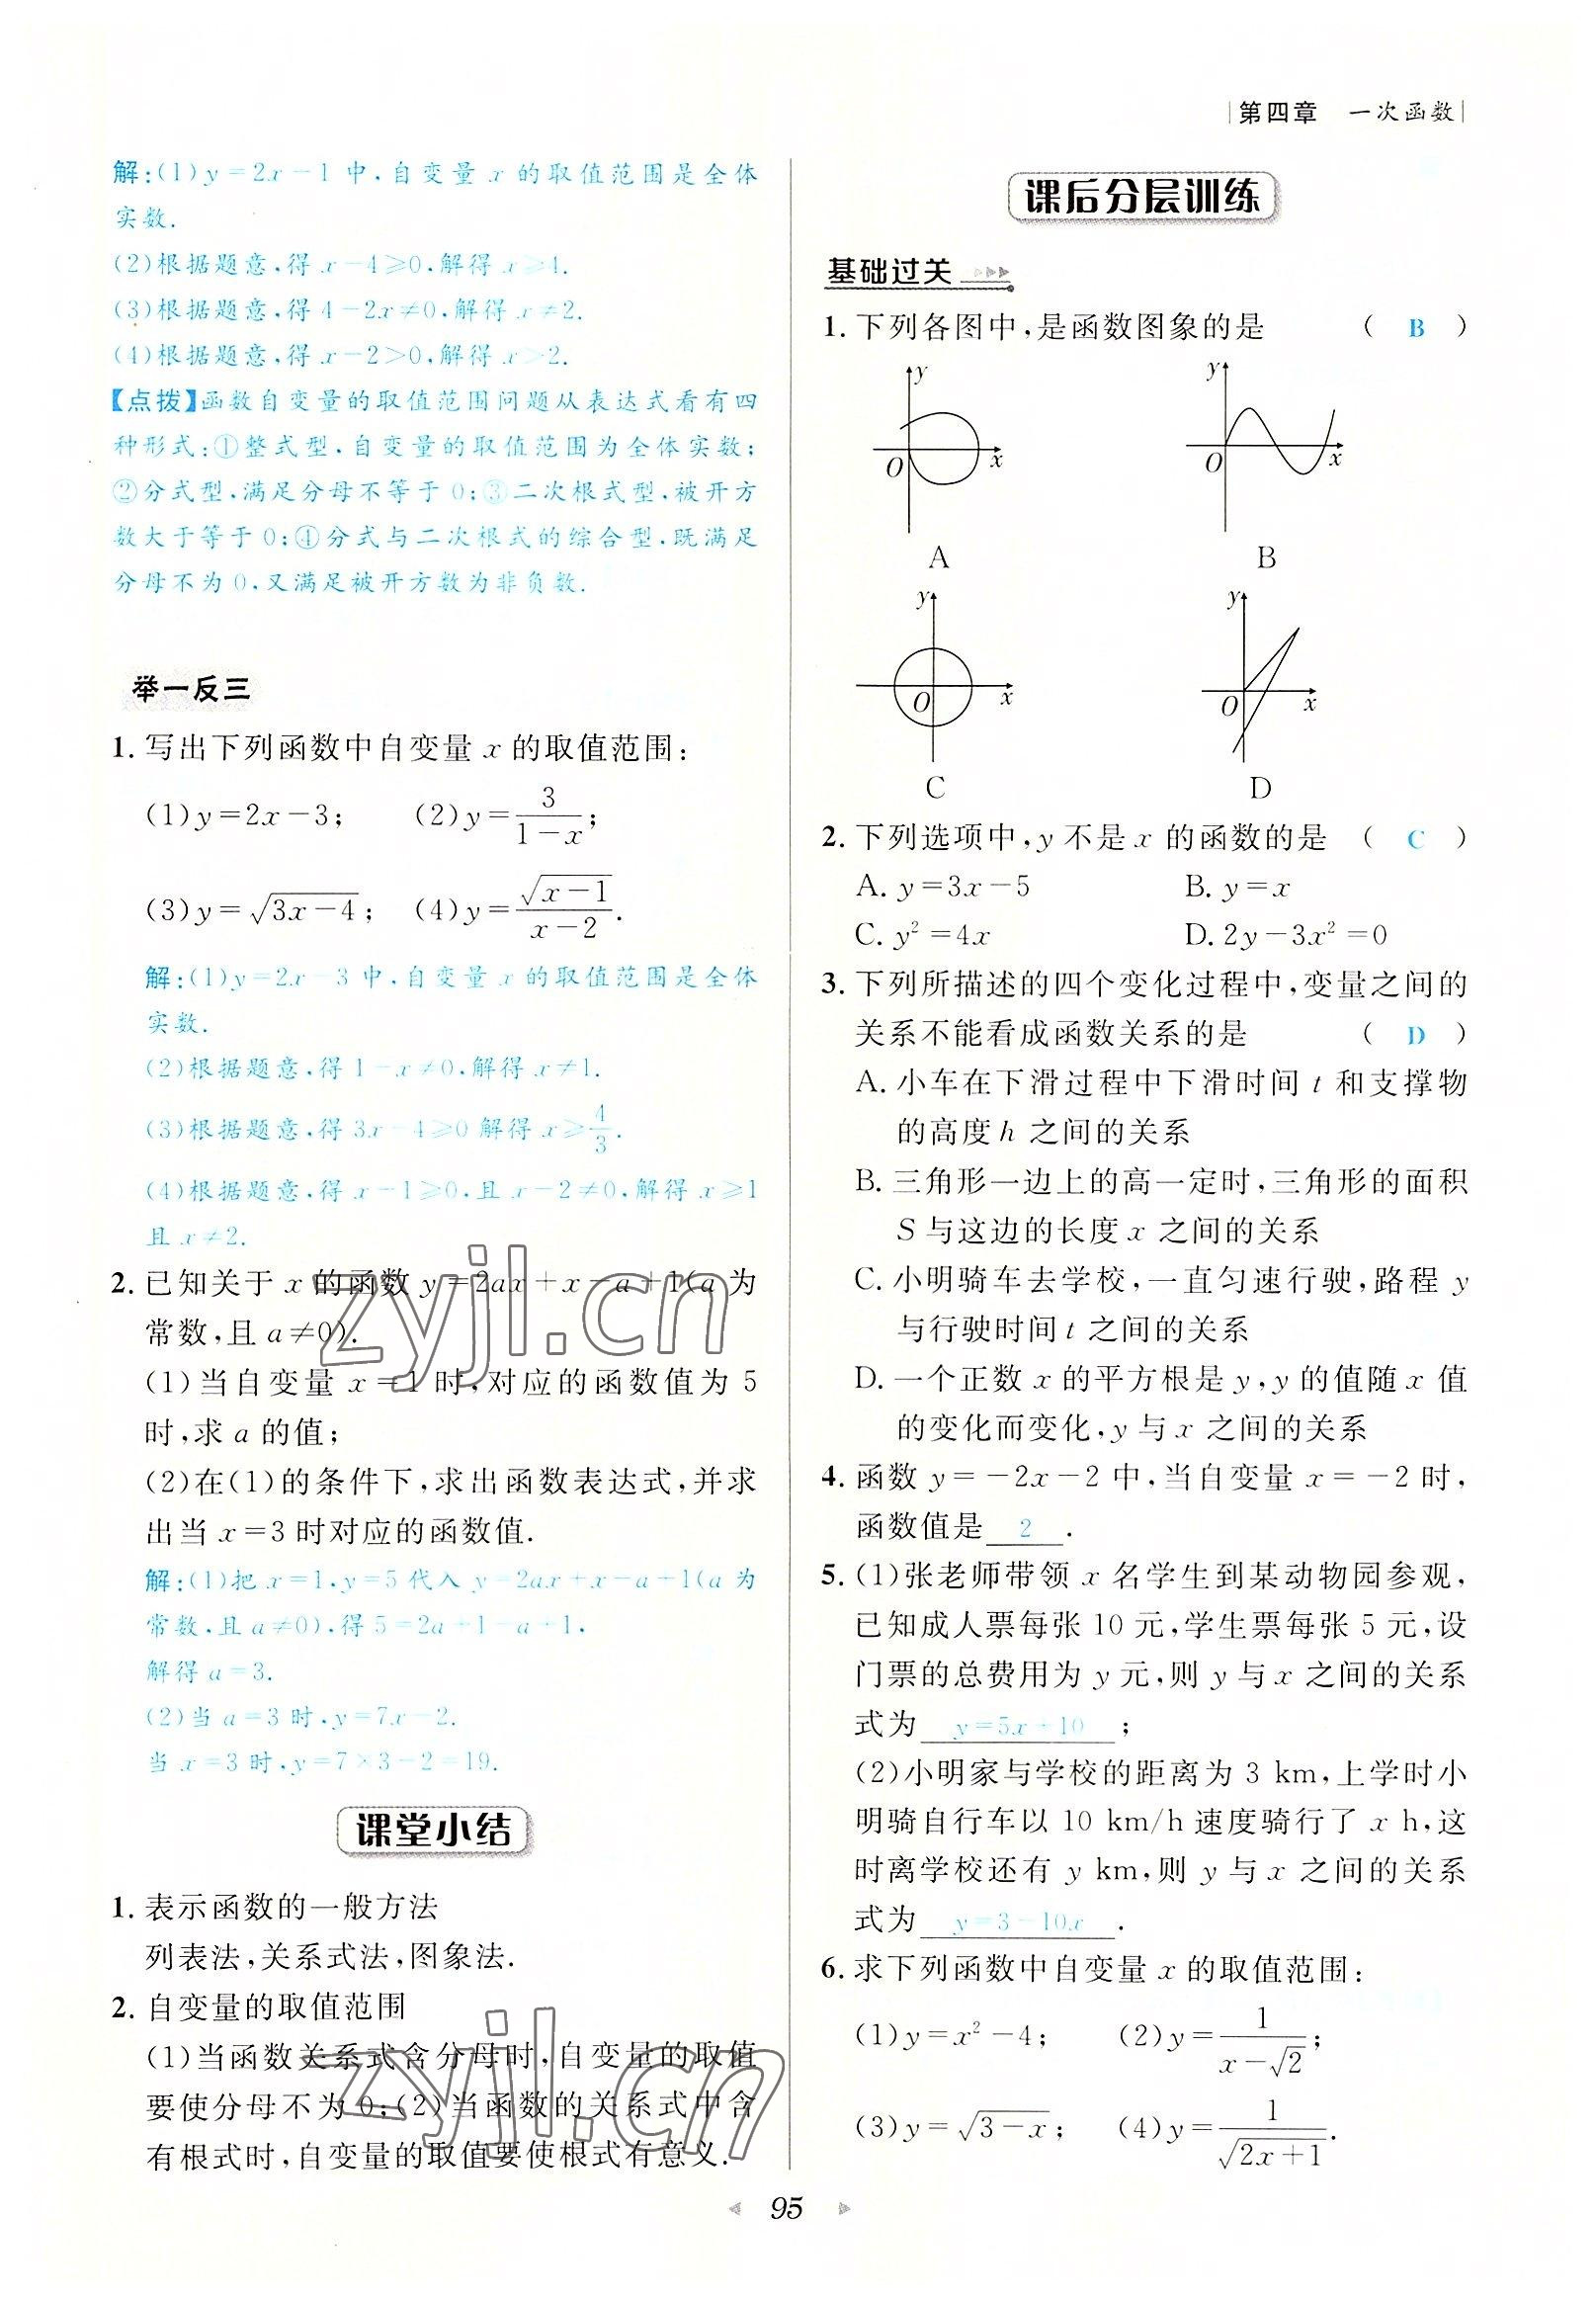 第四章 一次函数
解:(1)y=2x-1中,自变量x的取值范围是全体
实数.
(2)根据题意,得x-4≥0,解得x≥4.
(3)根据题意,得4-2x≠0,解得x≠2.
(4)根据题意,得x-2>0,解得x>2.
【点拨】函数自变量的取值范围问题从表达式看有四
种形式:①整式型,自变量的取值范围为全体实数;
②分式型,满足分母不等于0;③二次根式型,被开方
数大于等于0;④分式与二次根式的综合型,既满足
分母不为0,又满足被开方数为非负数.
举一反三
1. 写出下列函数中自变量x的取值范围:
(1)y=2x-3; (2)y=3/(1-x);
(3)y=√(3x-4); (4)y=√(x-1)/(x-2).
解:(1)y=2x-3中,自变量x的取值范围是全体
实数.
(2)根据题意,得1-x≠0,解得x≠1.
(3)根据题意,得3x-4≥0解得x≥4/3.
(4)根据题意,得x-1≥0,且x-2≠0,解得x≥1
且x≠2.
2. 已知关于x的函数y=2ax+x-a+1(a为
常数,且a≠0).
(1)当自变量x=1时,对应的函数值为5
时,求a的值;
(2)在(1)的条件下,求出函数表达式,并求
出当x=3时对应的函数值.
解:(1)把x=1,y=5代入y=2ax+x-a+1(a为
常数,且a≠0),得5=2a+1-a+1,
解得a=3.
(2)当a=3时,y=7x-2.
当x=3时,y=7×3-2=19.
课堂小结
1. 表示函数的一般方法
列表法,关系式法,图象法.
2. 自变量的取值范围
(1)当函数关系式含分母时,自变量的取值
要使分母不为0;(2)当函数的关系式中含
有根式时,自变量的取值要使根式有意义.
课后分层训练
基础过关
1. 下列各图中,是函数图象的是 ( B )
y
O
x
A
y
O
x
B
y
O
x
C
y
O
x
D
2. 下列选项中,y不是x的函数的是 ( C )
A. y=3x-5 B. y=x
C. y²=4x D. 2y-3x²=0
3. 下列所描述的四个变化过程中,变量之间的
关系不能看成函数关系的是 ( D )
A. 小车在下滑过程中下滑时间t和支撑物
的高度h之间的关系
B. 三角形一边上的高一定时,三角形的面积
S与这边的长度x之间的关系
C. 小明骑车去学校,一直匀速行驶,路程y
与行驶时间t之间的关系
D. 一个正数x的平方根是y,y的值随x值
的变化而变化,y与x之间的关系
4. 函数y=-2x-2中,当自变量x=-2时,
函数值是 2 .
5. (1)张老师带领x名学生到某动物园参观,
已知成人票每张10元,学生票每张5元,设
门票的总费用为y元,则y与x之间的关系
式为 y=5x+10 ;
(2)小明家与学校的距离为3 km,上学时小
明骑自行车以10 km/h速度骑行了x h,这
时离学校还有y km,则y与x之间的关系
式为 y=3-10x .
6. 求下列函数中自变量x的取值范围:
(1)y=x²-4; (2)y=1/(x-√2);
(3)y=√(3-x); (4)y=1/√(2x+1).
95
zyjl.cn
zyjl.cn